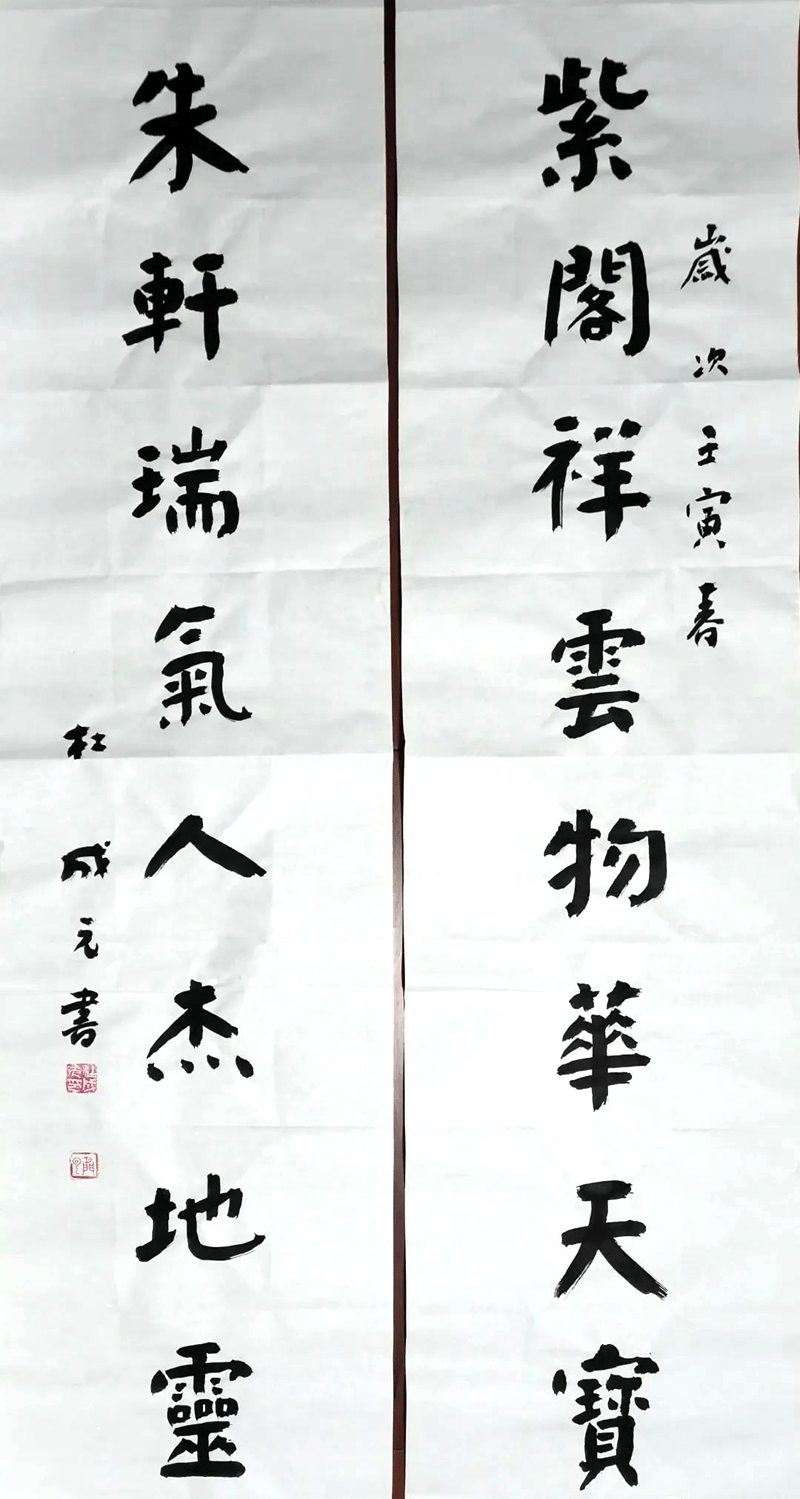 歲次壬寅春
紫閣祥雲物華天寶
朱軒瑞氣人杰地靈
杜成元書